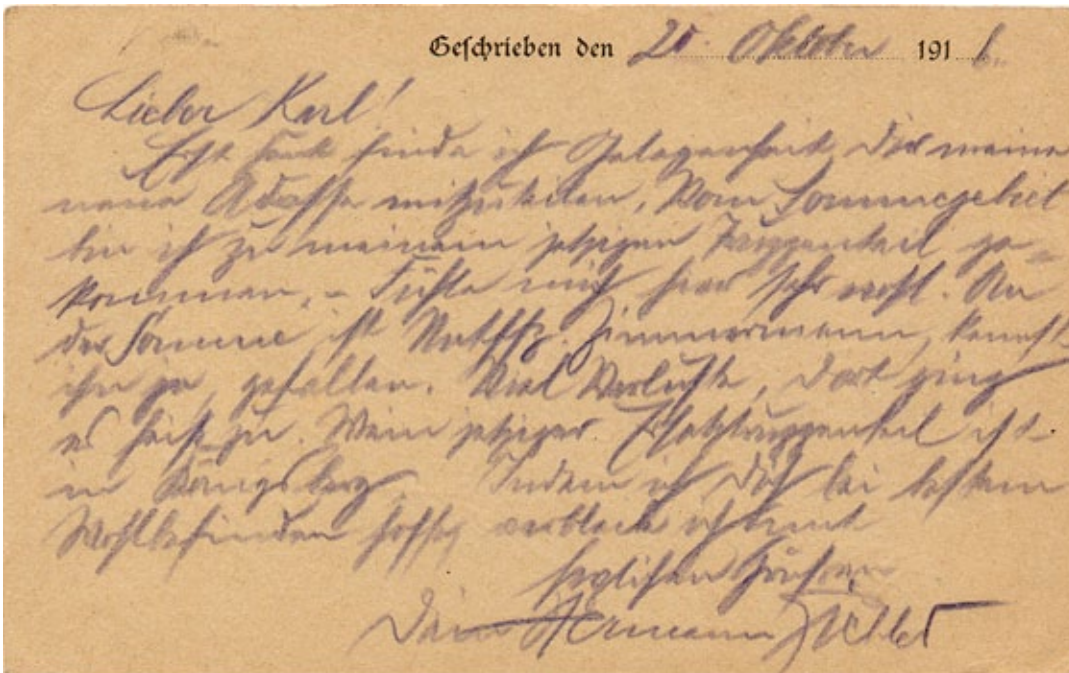 Geschrieben den 20. Oktober 1916.
Lieber Karl!
Erst heute finde ich Gelegenheit, Dir meine
neue Adresse mitzuteilen. Vom Sommegebiet
bin ich zu meinem jetzigen Truppenteil ge-
kommen, - Fühle mich hier sehr wohl. An
der Somme ist Untffz. Zimmermann, kennst
ihn ja, gefallen. Viel Verluste, dort ging
es heiß zu. Mein jetziger Ersatztruppenteil ist
in Königsberg. Indem ich Dich bei bestem
Wohlbefinden hoffe, verbleibe ich mit
herzlichen Grüßen
Dein Hermann